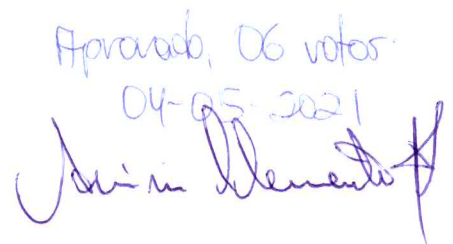 Aprovado, 06 votos.
04-05-2021